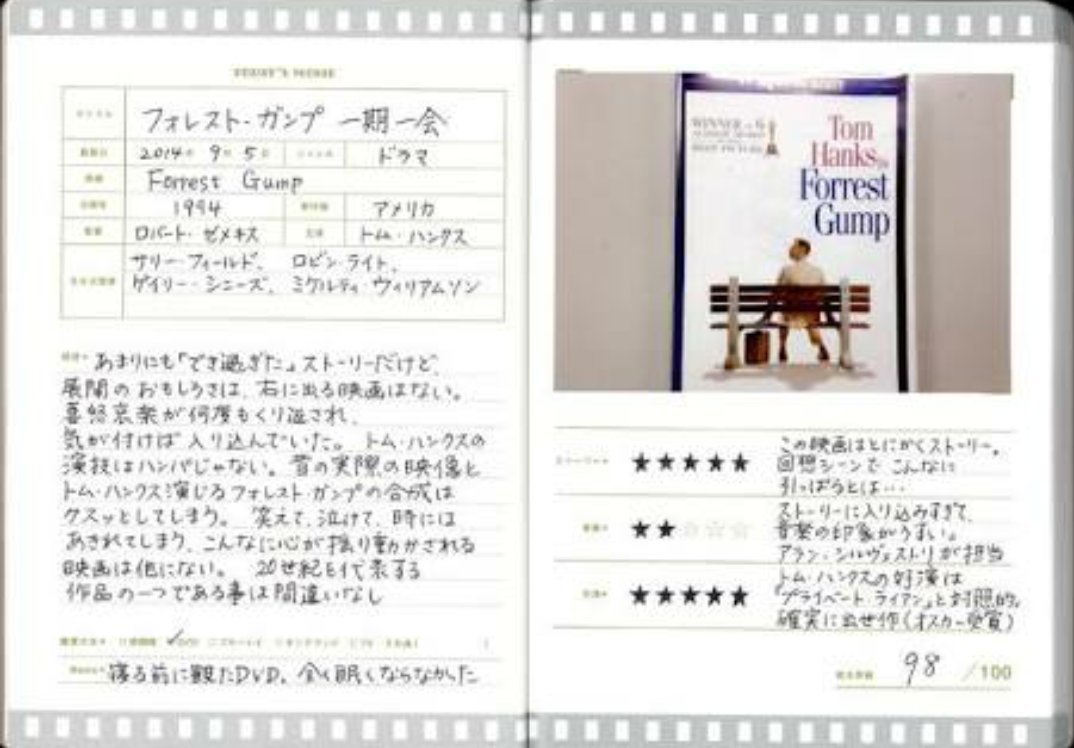 フォレスト・ガンプ 一期一会
2014 9 5 ドラマ
Forrest Gump
1994 アメリカ
ロバート・ゼメキス トム・ハンクス
サリー・フィールド、 ロビン・ライト、
ゲイリー・シニーズ、ミケルティ・ウィリアムソン
あまりにも「でき過ぎた」ストーリーだけど、
展開のおもしろさは、右に出る映画はない。
喜怒哀楽が何度もくり返され、
気が付けば入り込んでいた。 トム・ハンクスの
演技はハンパじゃない。昔の実際の映像と
トム・ハンクス演じるフォレスト・ガンプの合成は
クスッとしてしまう。 笑えて、泣けて、時には
あきれてしまう、こんなに心が揺り動かされる
映画は他にない。 20世紀を代表する
作品の一つである事は間違いなし
DVD
寝る前に観たDVD。全く眠くならなかった
WINNER 6
BEST PICTURE
Tom
Hanks is
Forrest
Gump
この映画はとにかくストーリー。
回想シーンで こんなに
引っぱろうとは…
ストーリーに入り込みすぎて、
音楽の印象がうすい。
アラン・シルヴェストリが担当
トム・ハンクスの好演は
「プライベート・ライアン」と対照的。
確実に出世作(オスカー受賞)
98 /100